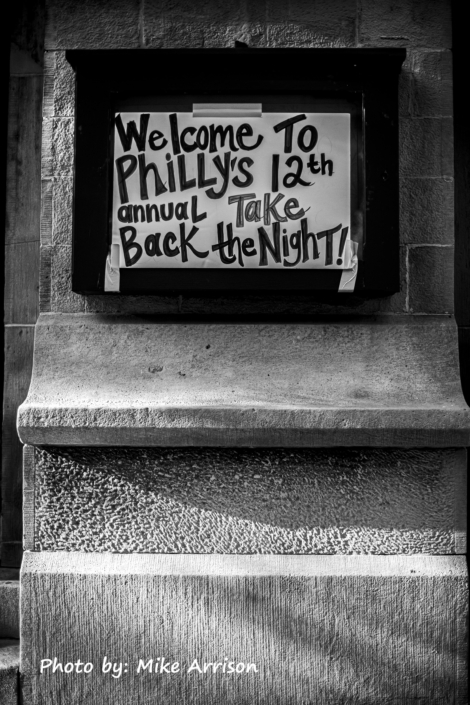 Welcome To
PHiLLy's 12th
annual Take
Back the NighT!
Photo by: Mike Arrison